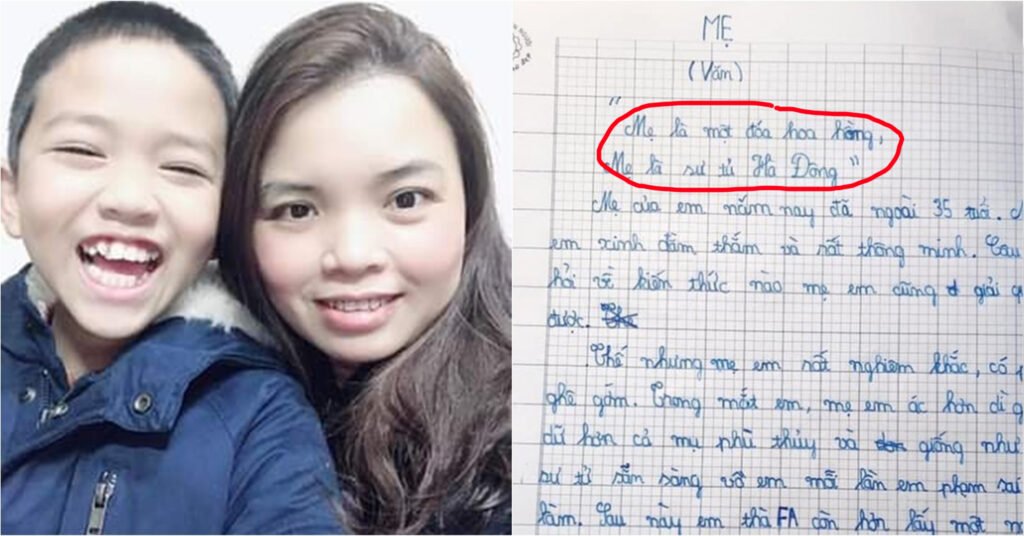 MẸ
(Văn)
"Mẹ là một đóa hoa hồng,
Mẹ là sư tử Hà Đông"
Mẹ của em năm nay đã ngoài 35 tuổi.
em xinh đằm thắm và rất thông minh. Câu
hỏi về kiến thức nào mẹ em cũng giải
được.
Thế nhưng mẹ em rất nghiêm khắc, có
ghê gớm. Trong mắt em, mẹ em ác hơn dì
dữ hơn cả mụ phù thủy và giống như
sư tử sẵn sàng vồ em mỗi lần em phạm sai
lầm. Sau này em thà FA còn hơn lấy một